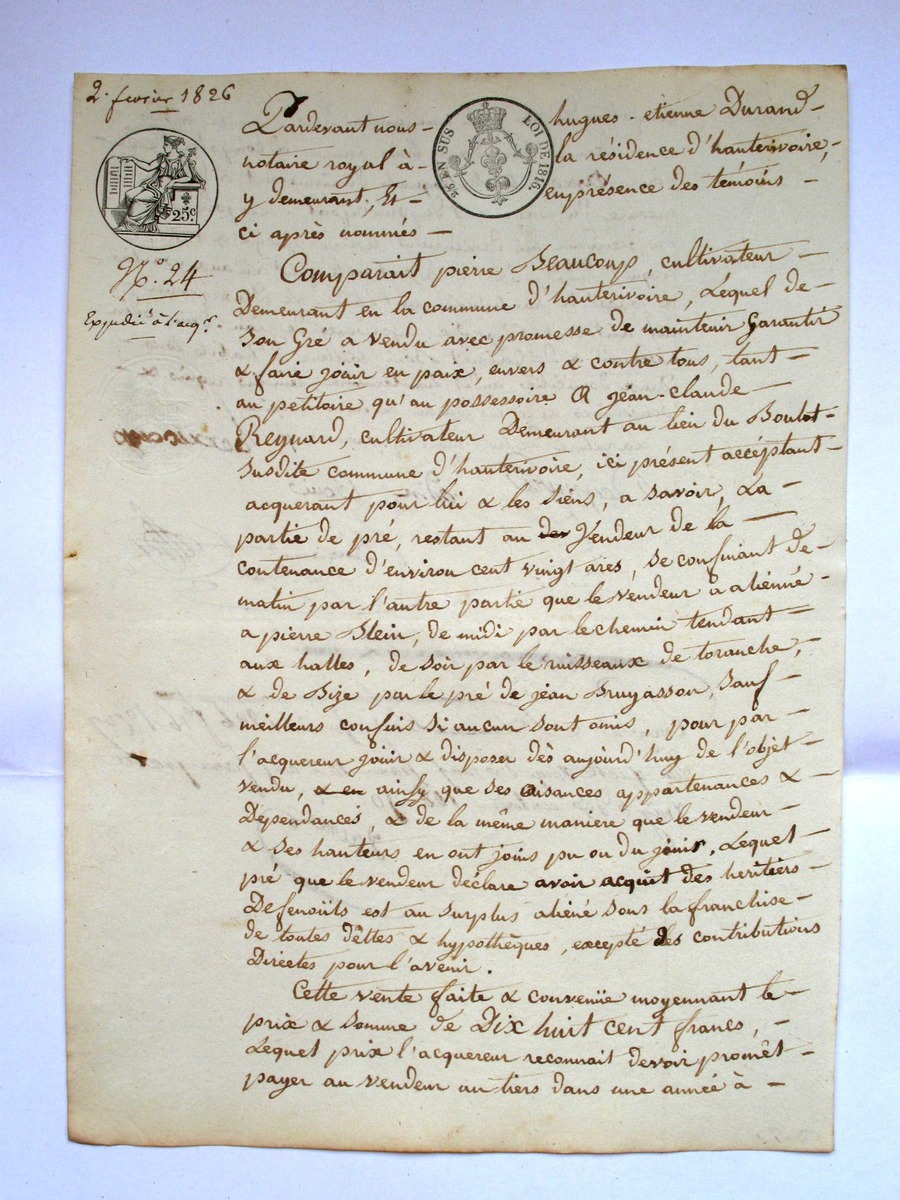 2. fevrier 1826
EN SUS LOI DE 1816.
25 c
Nº. 24
Expedié à l'acqr.
Pardevant nous — hugues - etienne Durand —
notaire royal à — la résidence d'hauterivoire, —
y demeurant, Et — en présence des témoins —
ci après nommés —
Comparait pierre Beaucoup, cultivateur —
Demeurant en la commune d'hauterivoire, Lequel de —
son Gré a vendu avec promesse de maintenir Garantir
& faire jouir en paix, envers & contre tous, tant —
au petitoire qu'au possessoire A jean-claude —
Reynard, cultivateur Demeurant au lieu du Boulot —
susdite commune d'hauterivoire, ici présent accéptant —
acquerant pour lui & les siens, a savoir, La —
partie de pré, restant au des Vendeur de la —
contenance d'environ cent vingt ares, se confinant de —
matin par l'autre partie que le vendeur a aliénné —
a pierre Blein, de midi par le chemin tendant —
aux halles, de soir par le ruisseaux de toranche, —
& de Bize par le pré de jean Bruyasson, sauf —
meilleurs confins si aucun sont omis, pour par —
l'acquereur jouir & disposer dès aujourd'huy de l'objet —
vendu, & en ainsy que ses aisances appartenances & —
Dependances, & de la même maniere que le vendeur —
& ses hauteurs en ont jouis pu ou du jouir, Lequel —
pré que le vendeur déclare avoir acquit des heritiers —
Defenoüils est au surplus aliéné sous la franchise —
de toutes dèttes & hypothèques, excepté des contributions
Directes pour l'avenir.
Cette vente faite & convenüe moyennant le —
prix & somme de Dix huit cent francs, —
Lequel prix l'acquereur reconnait devoir promèt —
payer au vendeur un tiers dans une année à —